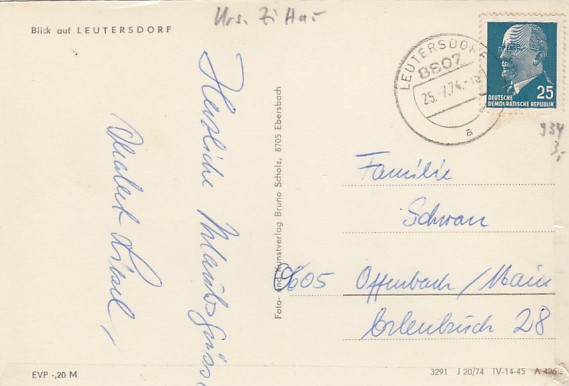 Blick auf LEUTERSDORF
Krs. Zittau
LEUTERSDORF
8807
25.-7.74.-18
a
25
DEUTSCHE
DEMOKRATISCHE REPUBLIK
934
3,-
Herzliche Urlaubsgrüsse
Foto- und Kunstverlag Bruno Scholz, 8705 Ebersbach
Familie
Schwan
605 Offenbach/Main
Erlenbruch 28
EVP -,20 M
3291 J 20/74 IV-14-45 A 426